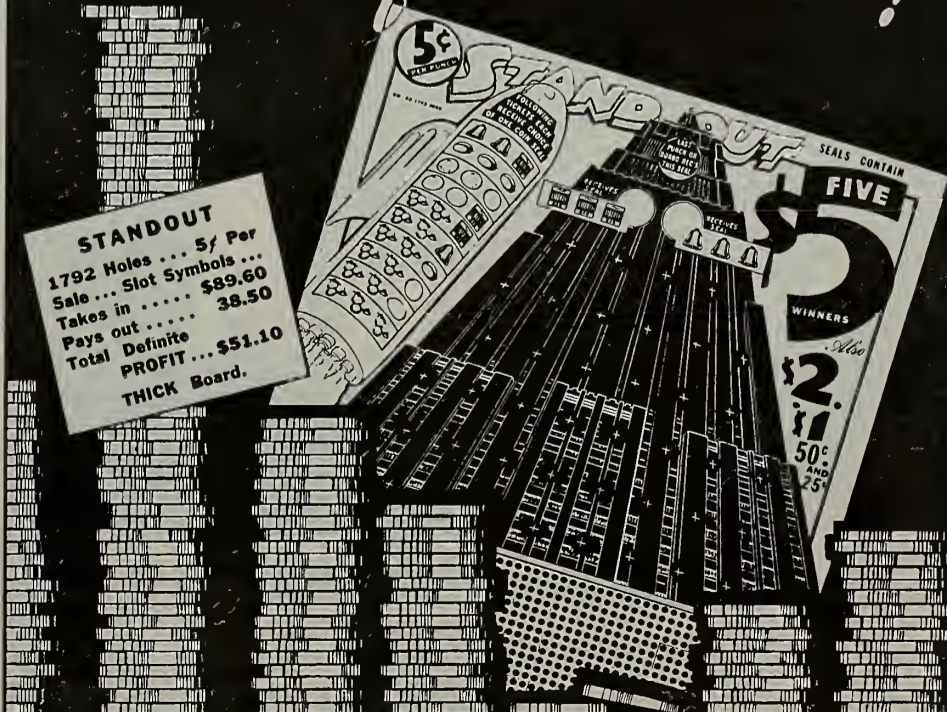 5¢
PER PUNCH
STAND OUT
FOLLOWING
TICKETS EACH
RECEIVE CHOICE
OF ONE COIN SEAL
LAST
PUNCH ON
BOARD RECS
THIS SEAL
RECEIVES
SEAL
RECEIVES
SEAL
SEALS CONTAIN
FIVE
$5
WINNERS
Also
$2.
$1
50¢
AND
25¢
STANDOUT
1792 Holes ... 5¢ Per
Sale ... Slot Symbols ...
Takes in ..... $89.60
Pays out ..... 38.50
Total Definite
PROFIT ... $51.10
THICK Board.